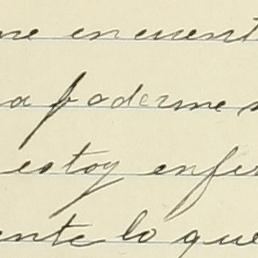 me encuent
a poderme
estoy enfer
ente lo que